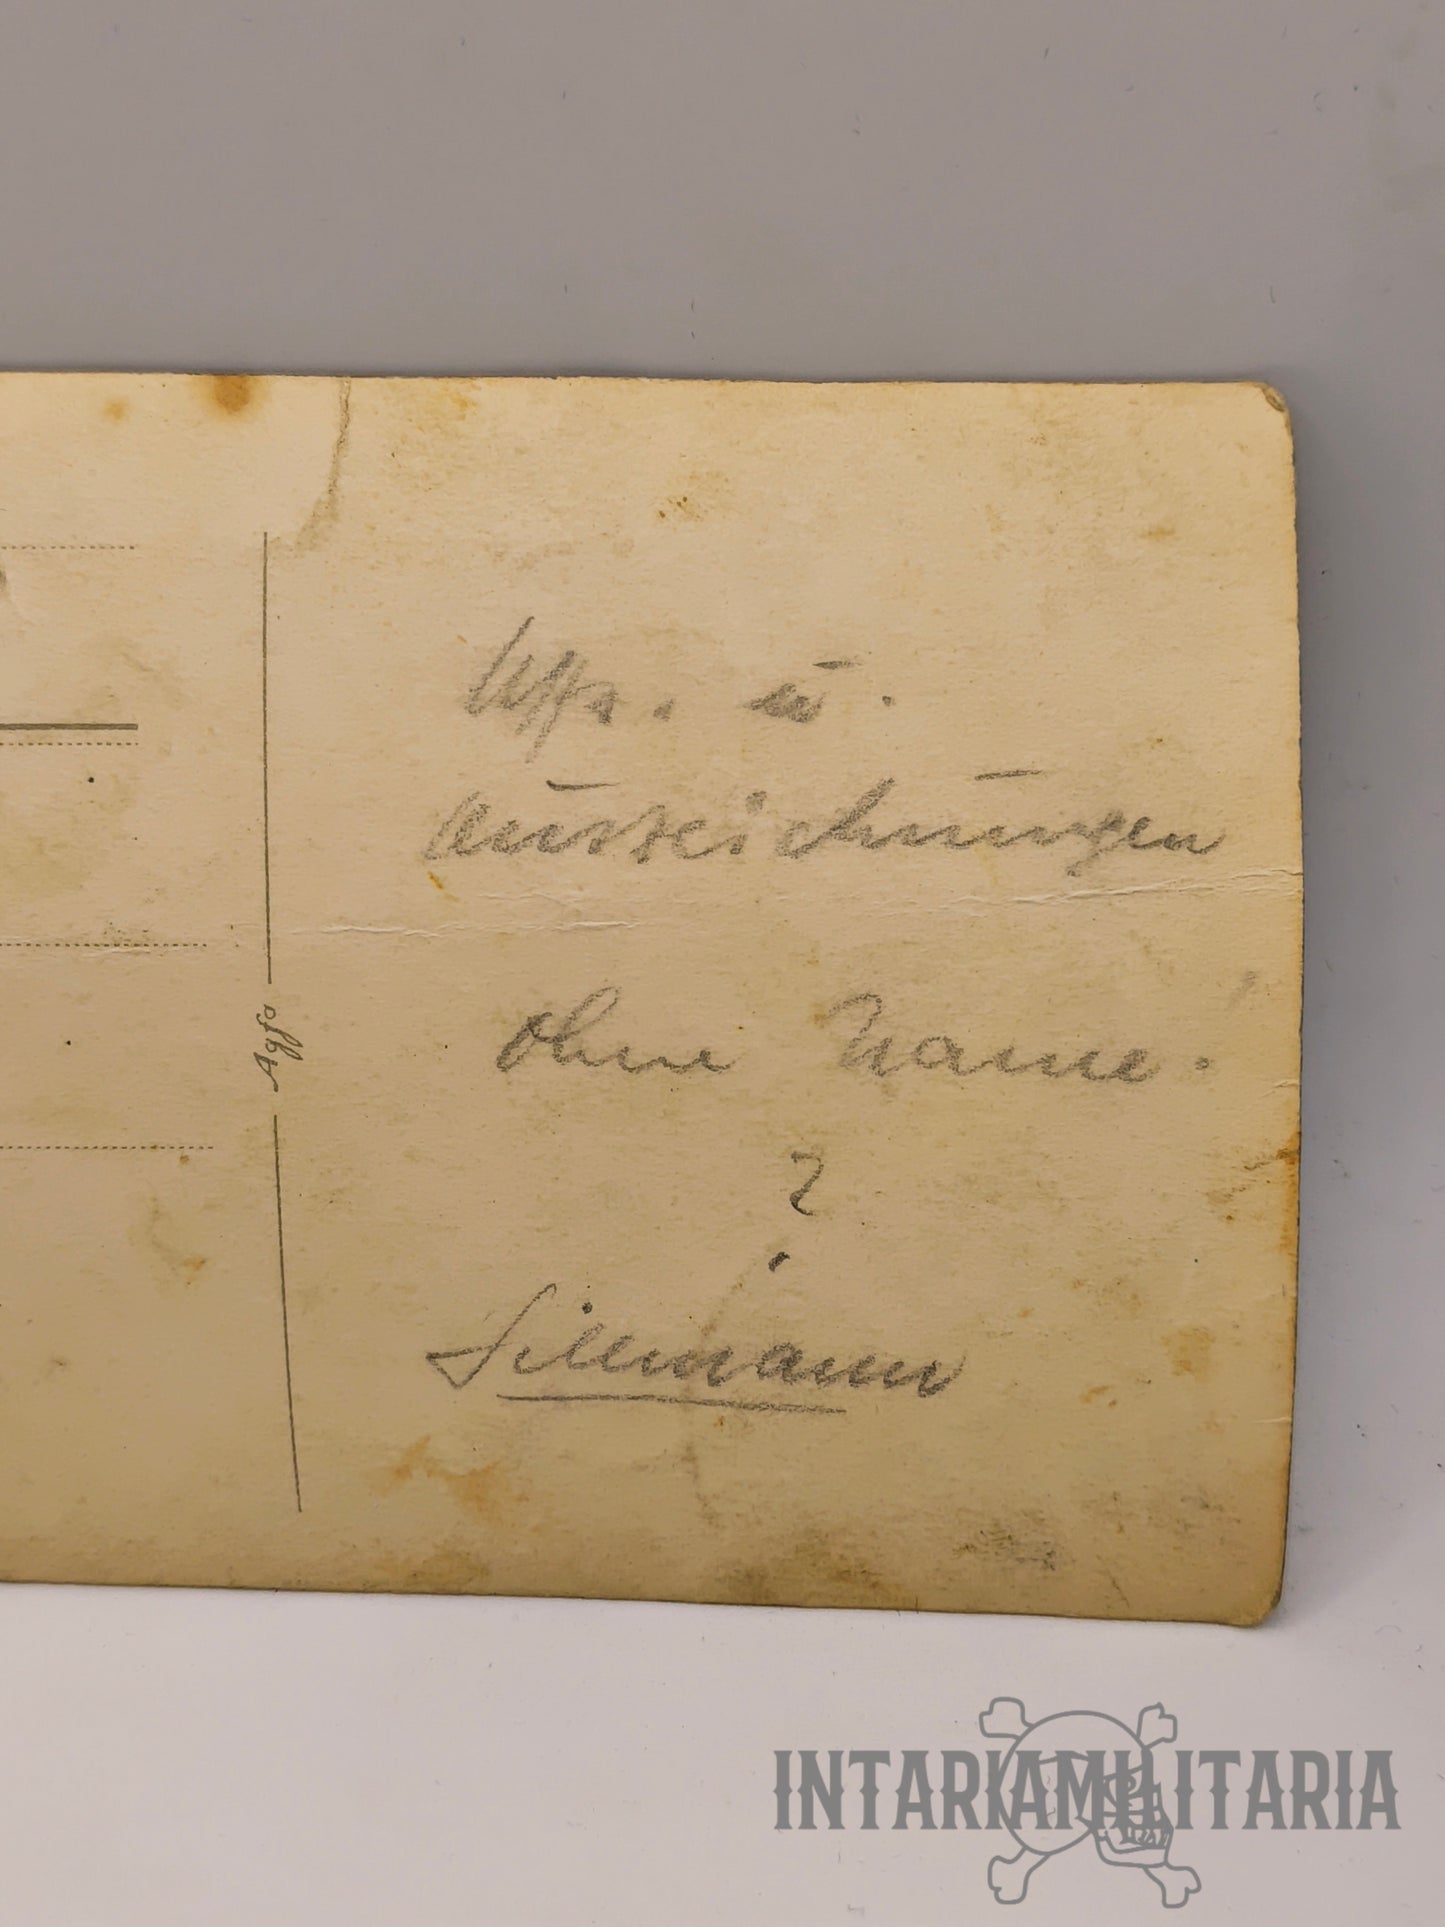 Uffz. u.
Auszeichnungen
ohne Name.
?
Sillmann
Agfa
INTARIAMILITARIA